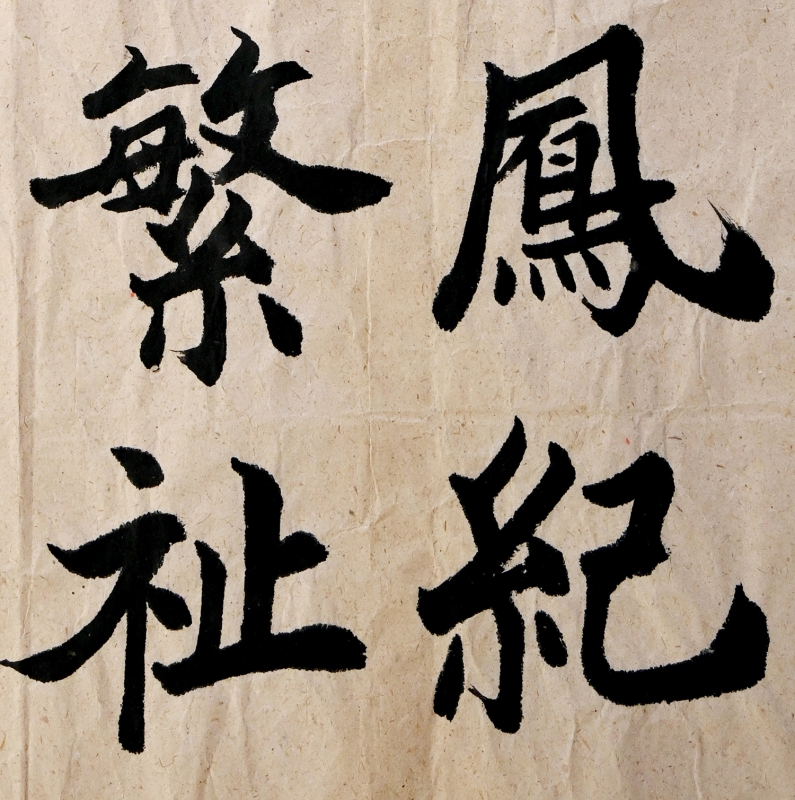 鳳紀
繁祉